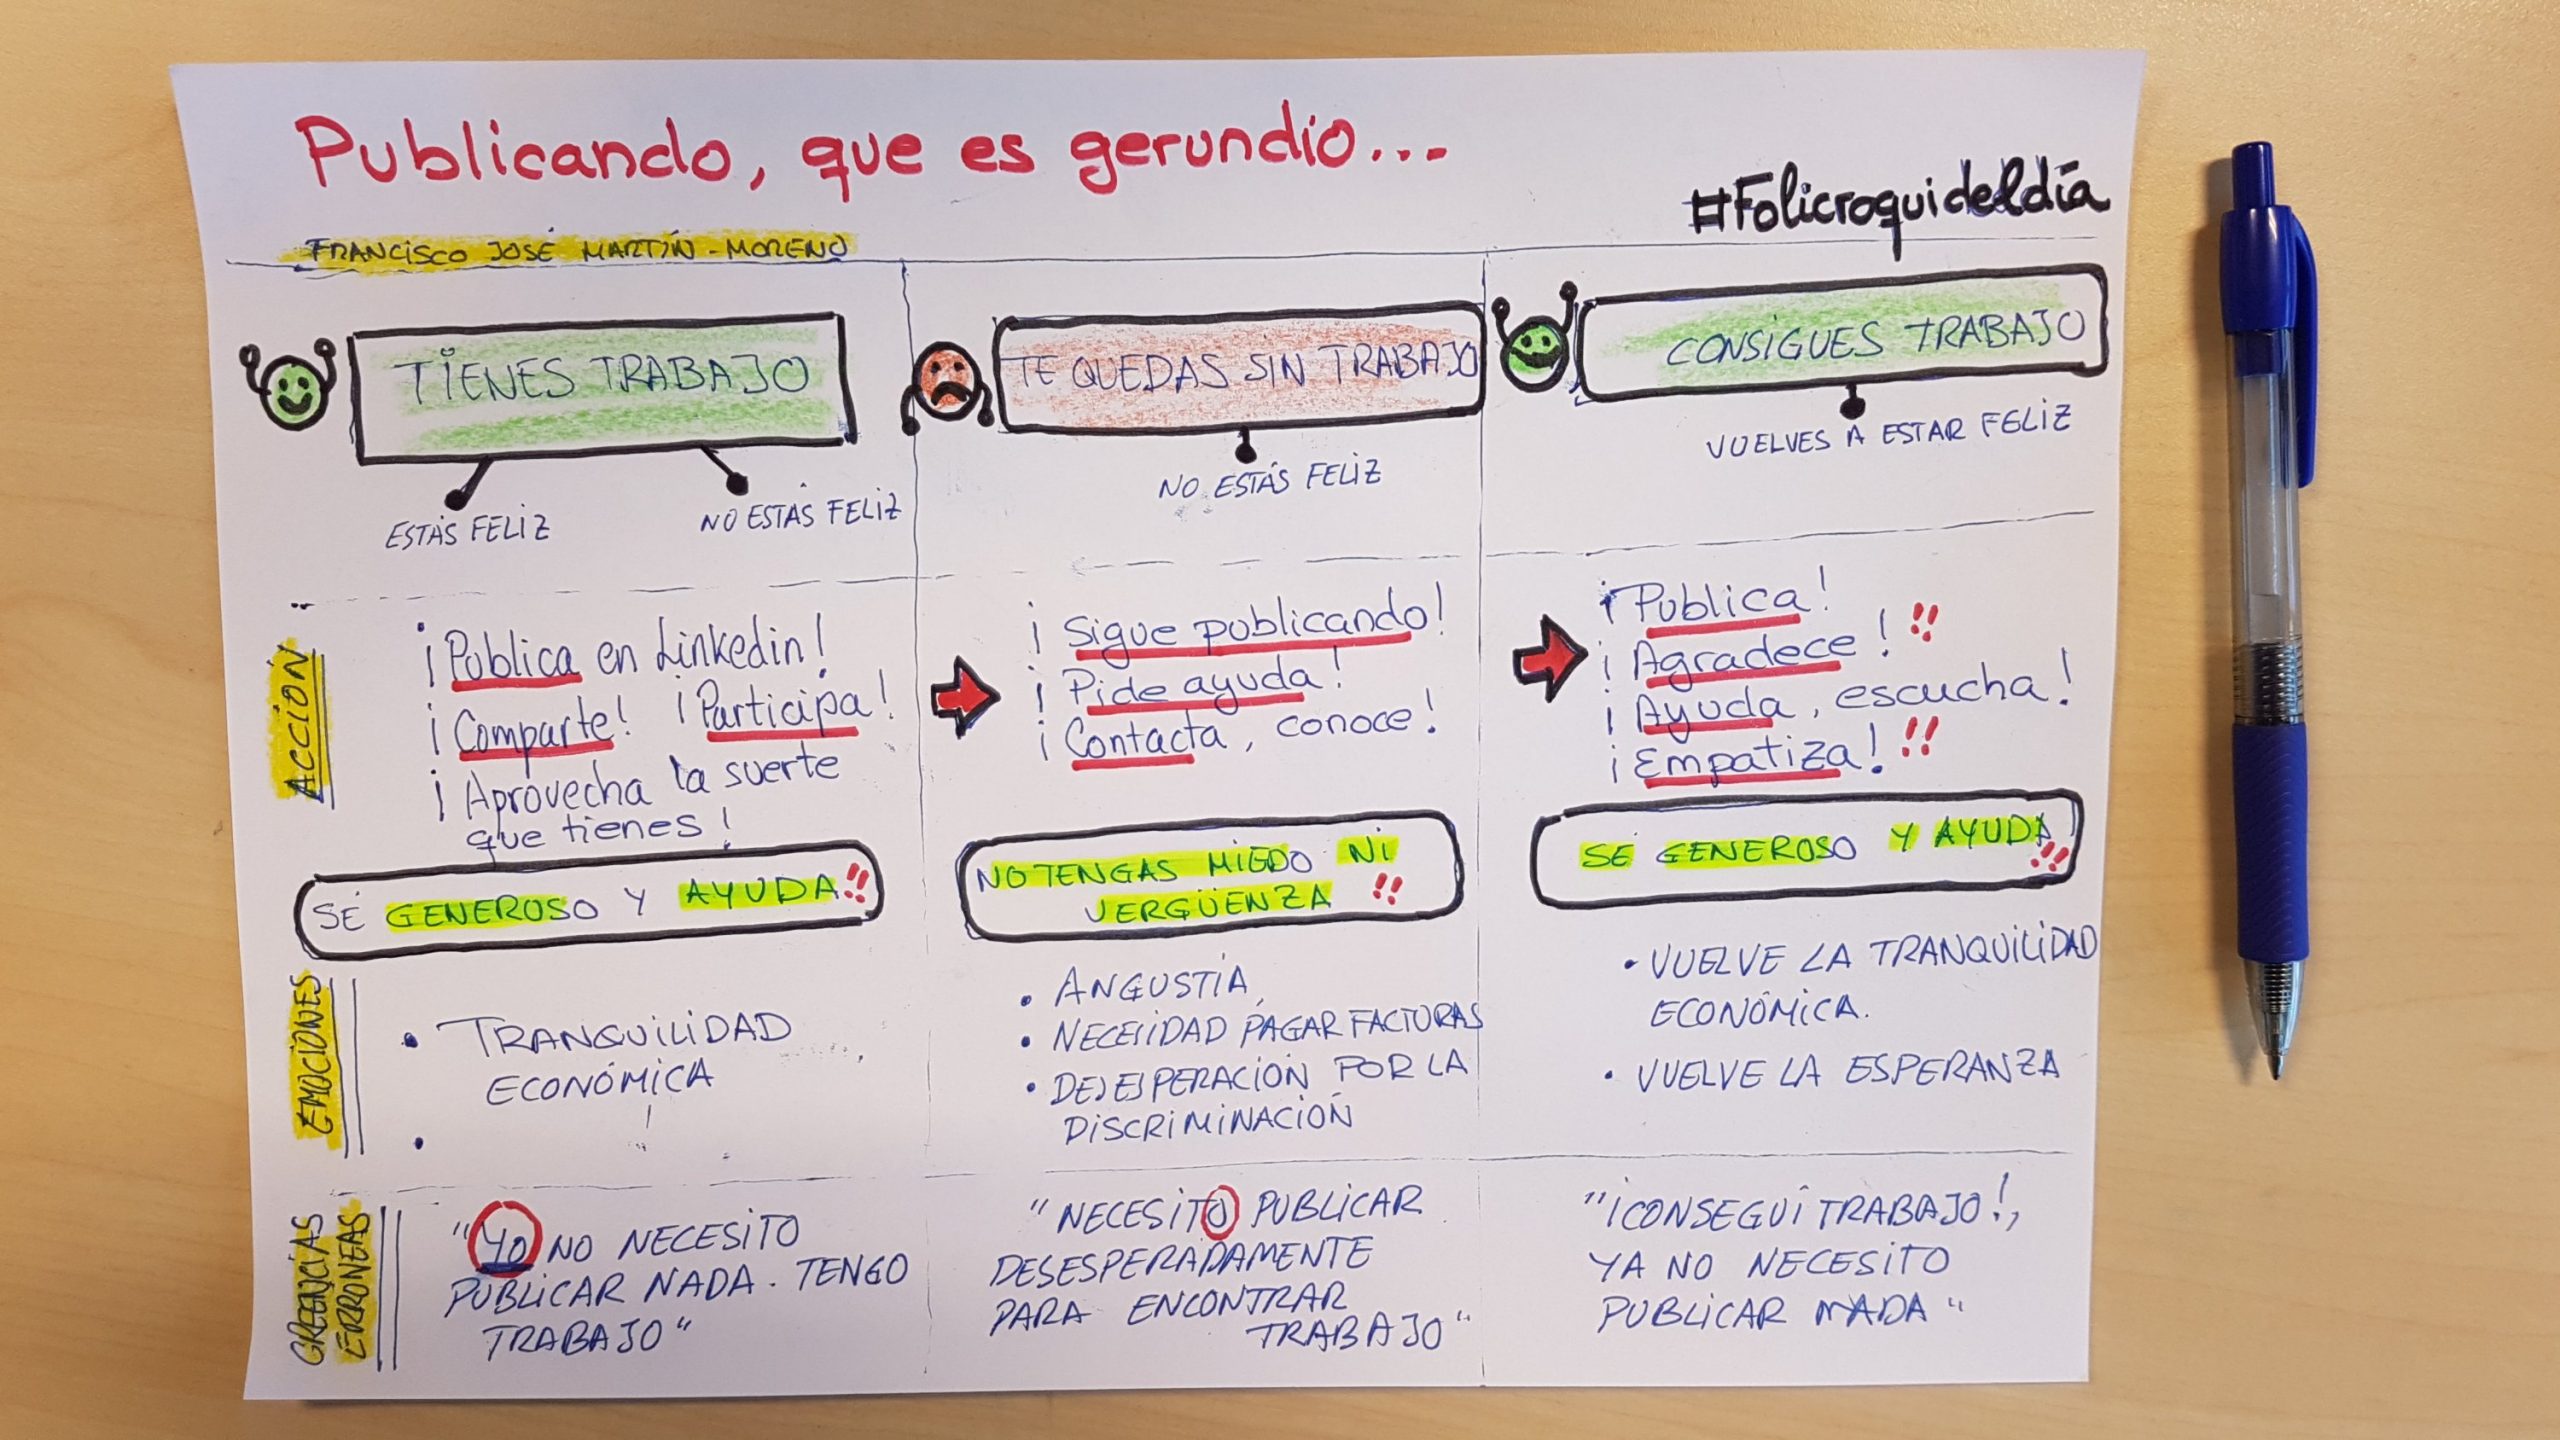 Publicando, que es gerundio...
#Folicroquideldía
FRANCISCO JOSÉ MARTÍN-MORENO
TIENES TRABAJO
ESTÁS FELIZ
NO ESTÁS FELIZ
TE QUEDAS SIN TRABAJO
NO ESTÁS FELIZ
CONSIGUES TRABAJO
VUELVES A ESTAR FELIZ
ACCIÓN
¡Publica en Linkedin!
¡Comparte! ¡Participa!
¡Aprovecha la suerte
que tienes!
SÉ GENEROSO Y AYUDA!!
¡Sigue publicando!
¡Pide ayuda!
¡Contacta, conoce!
NO TENGAS MIEDO NI
VERGÜENZA !!
¡Publica!
¡Agradece! !!
¡Ayuda, escucha!
¡Empatiza! !!
SÉ GENEROSO Y AYUDA
!!
EMOCIONES
• TRANQUILIDAD
ECONÓMICA
•
• ANGUSTIA
• NECESIDAD PAGAR FACTURAS
• DESESPERACIÓN POR LA
DISCRIMINACIÓN
• VUELVE LA TRANQUILIDAD
ECONÓMICA.
• VUELVE LA ESPERANZA
CREENCIAS
ERRONEAS
"YO NO NECESITO
PUBLICAR NADA. TENGO
TRABAJO"
"NECESITO PUBLICAR
DESESPERADAMENTE
PARA ENCONTRAR
TRABAJO"
"¡CONSEGUÍ TRABAJO!,
YA NO NECESITO
PUBLICAR NADA"